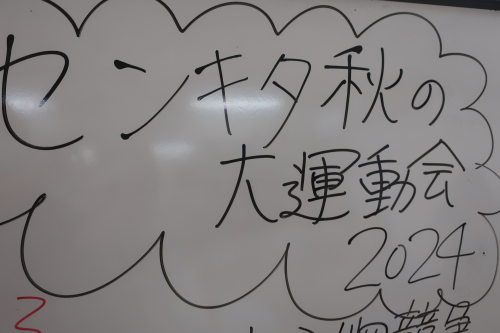 センキタ秋の
大運動会
2024